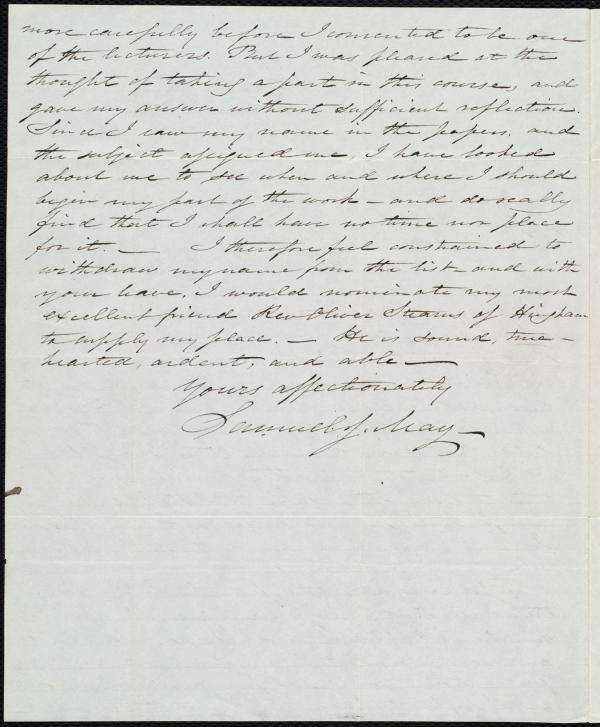 more carefully before I consented to be one
of the lecturers. But I was pleased at the
thought of taking a part in this course, and
gave my answer without sufficient reflection.
Since I saw my name in the papers, and
the subject assigned me, I have looked
about me to see when and where I should
begin my part of the work – and do really
find that I shall have no time nor place
for it. — I therefore feel constrained to
withdraw my name from the list – and with
your leave, I would nominate my most
excellent friend Rev Oliver Stearns of Hingham
to supply my place. — He is sound, true-
hearted, ardent, and able —
Yours affectionately
Samuel J. May —